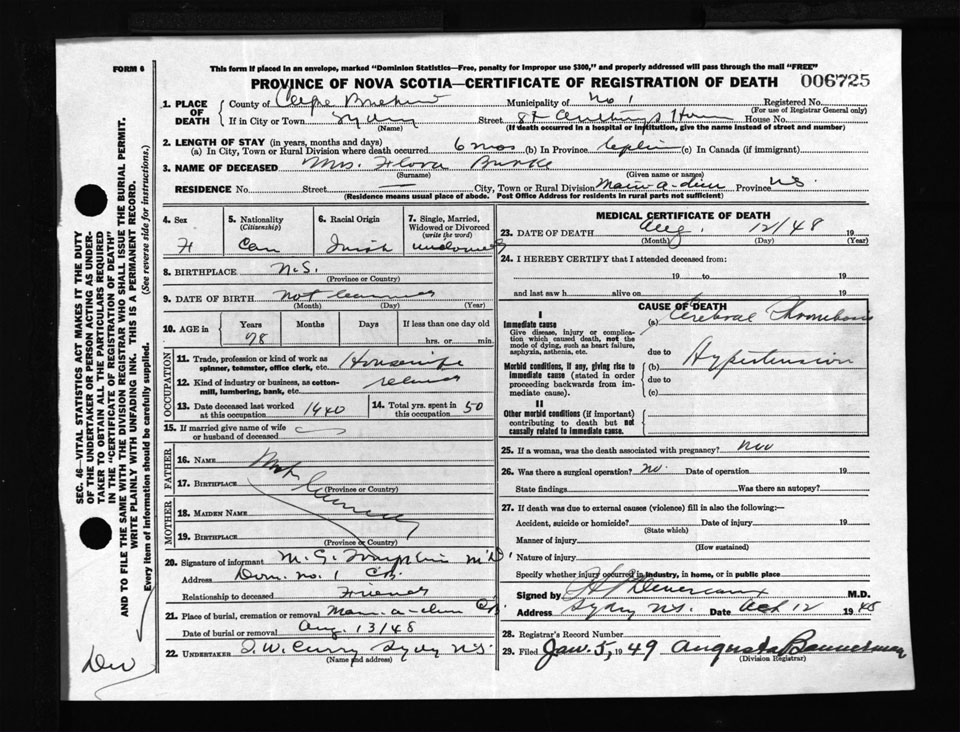 FORM 6
This form if placed in an envelope, marked "Dominion Statistics—Free, penalty for improper use $300," and properly addressed will pass through the mail "FREE"
PROVINCE OF NOVA SCOTIA—CERTIFICATE OF REGISTRATION OF DEATH 006725
1. PLACE OF DEATH County of Cape Breton Municipality of No 1 Registered No.
(For use of Registrar General only)
If in City or Town Sydney Street St Anthonys Home House No.
(Name) (If death occurred in a hospital or institution, give the name instead of street and number)
2. LENGTH OF STAY (in years, months and days)
(a) In City, Town or Rural Division where death occurred 6 mos (b) In Province (c) In Canada (if immigrant)
3. NAME OF DECEASED Mrs. Flora Burke
(Surname) (Given name or names)
RESIDENCE No. Street — City, Town or Rural Division Main-a-dieu Province N.S.
(Residence means usual place of abode. Post Office Address for residents in rural parts not sufficient)
4. Sex F
5. Nationality (Citizenship) Can
6. Racial Origin Irish
7. Single, Married, Widowed or Divorced (write the word) widowed
8. BIRTHPLACE N.S.
(Province or Country)
9. DATE OF BIRTH not learned
(Month) (Day) (Year)
10. AGE in Years 78 Months Days If less than one day old
hrs. or min.
OCCUPATION
11. Trade, profession or kind of work as spinner, teamster, office clerk, etc. Housewife
12. Kind of industry or business, as cotton-mill, lumbering, bank, etc.
13. Date deceased last worked at this occupation 1940
14. Total yrs. spent in this occupation 50
15. If married give name of wife or husband of deceased
FATHER
16. NAME Not
17. BIRTHPLACE learned
(Province or Country)
MOTHER
18. MAIDEN NAME
19. BIRTHPLACE
(Province or Country)
20. Signature of informant M. G. M.D.
Address Dom. No. 1 C.B.
Relationship to deceased Friend
21. Place of burial, cremation or removal Main-a-dieu C.B.
Date of burial or removal Aug. 13/48
22. UNDERTAKER T. W. Curry Sydney N.S.
(Name and address)
MEDICAL CERTIFICATE OF DEATH
23. DATE OF DEATH Aug. 12/48
(Month) (Day) (Year)
24. I HEREBY CERTIFY that I attended deceased from:
19 to 19
and last saw h alive on 19
CAUSE OF DEATH
I
Immediate cause (a) Cerebral Thrombosis
Give disease, injury or complication which caused death, not the mode of dying, such as heart failure, asphyxia, asthenia, etc.
due to
Morbid conditions, if any, giving rise to immediate cause (stated in order proceeding backwards from immediate cause). (b) Hypertension
due to
(c)
II
Other morbid conditions (if important) contributing to death but not causally related to immediate cause.
25. If a woman, was the death associated with pregnancy? No
26. Was there a surgical operation? no. Date of operation 19
State findings Was there an autopsy?
27. If death was due to external causes (violence) fill in also the following:—
Accident, suicide or homicide? Date of injury 19
(State which)
Manner of injury
(How sustained)
Nature of injury
Specify whether injury occurred in industry, in home, or in public place
Signed by Devereaux M.D.
Address Sydney N.S. Date Oct 12 1948
28. Registrar's Record Number
29. Filed Jan. 5, 1949 Augusta Bannerman
(Division Registrar)
SEC. 46—VITAL STATISTICS ACT MAKES IT THE DUTY
OF THE UNDERTAKER OR PERSON ACTING AS UNDER-
TAKER TO OBTAIN ALL THE PARTICULARS REQUIRED
IN THE "CERTIFICATE OF REGISTRATION OF DEATH"
AND TO FILE THE SAME WITH THE DIVISION REGISTRAR WHO SHALL ISSUE THE BURIAL PERMIT.
WRITE PLAINLY WITH UNFADING INK. THIS IS A PERMANENT RECORD.
Every item of information should be carefully supplied. (See reverse side for instructions.)